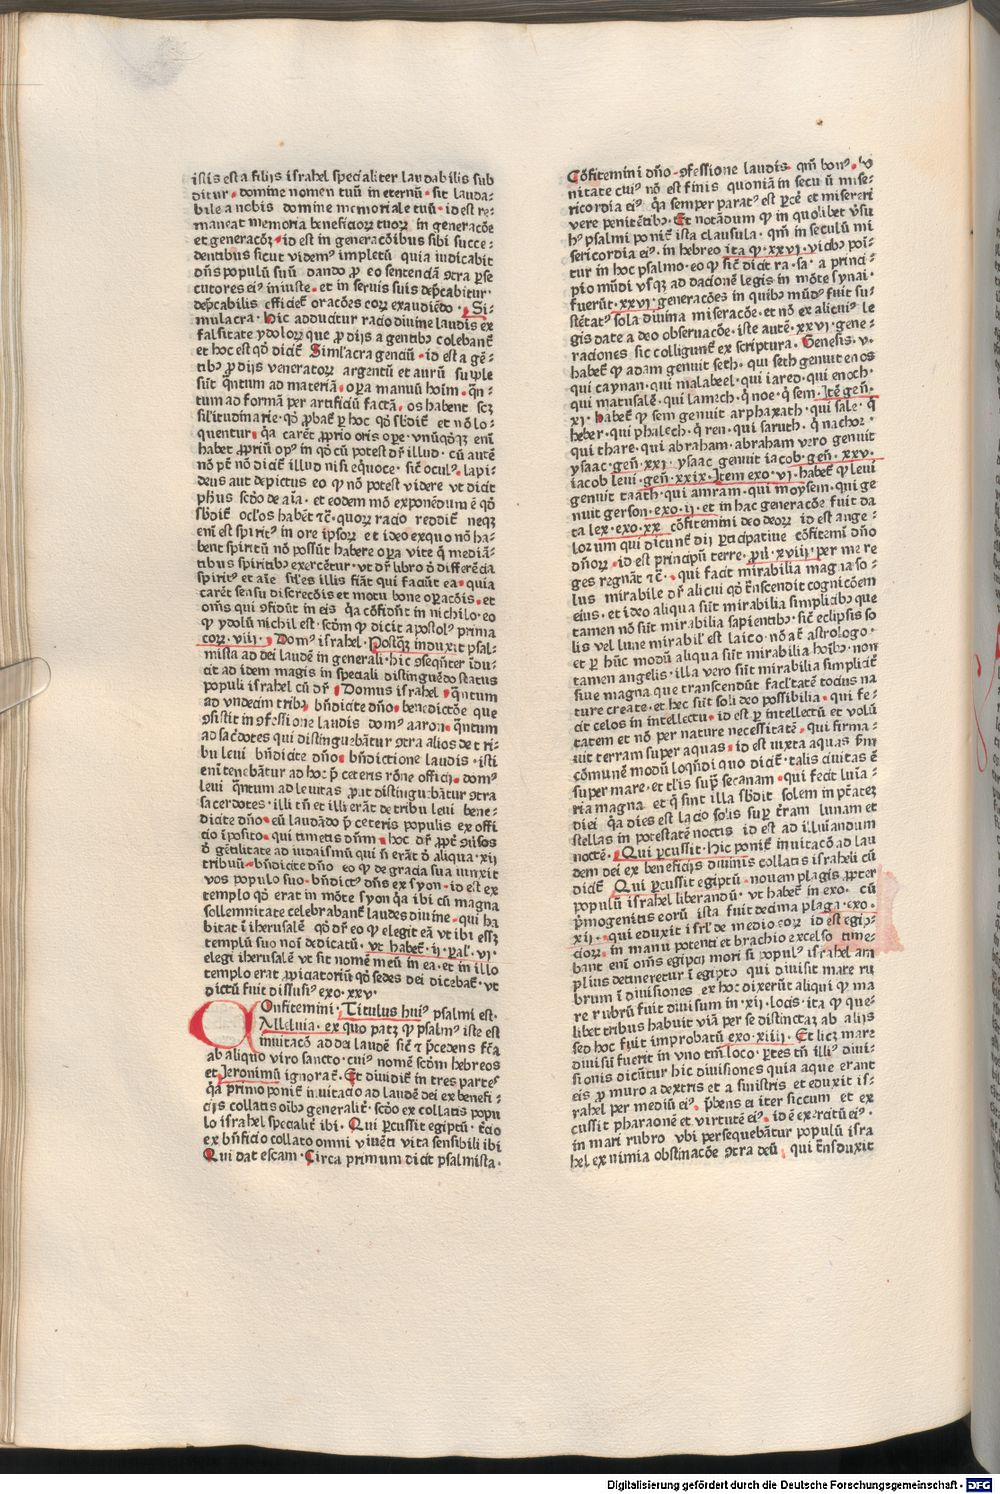 istis est a filijs israhel specialiter laudabilis sub
ditur. domine nomen tuū in eternū. sit lauda⸗
bile a nobis domine memoriale tuū. id est re⸗
maneat memoria beneficioꝝ tuoꝝ in generacōe
et generacōꝫ. id est in generacōibus sibi succe⸗
dentibus sicut videmꝰ impletū quia iudicabit
dn̄s populū suū dando ꝓ eo sentenciā ꝯtra ꝑse
cutores eiꝰ iniuste. et in seruis suis dep̄cabitur.
dep̄cabilis efficiet̄ oracōes eoꝝ exaudiēdo. Si⸗
mulacra. Hic adducitur racio diuine laudis ex
falsitate ydoloꝝ que ꝓ dijs a gentibꝫ colebant̄
et hoc est qd̓ dicit̄ Siml̓acra genciū. id est a gē⸗
tibꝫ ꝓ dijs veneratoꝝ argentū et aurū supple
sūt q̄ntum ad materiā. oꝑa manuū hoim̄. q̄n⸗
tum ad formā per artificiū factā. os habent scꝫ
sil̓itudinarie. qd̓ ꝓbat̄ ꝑ hoc qd̓ sb̓dit̄ et nō lo⸗
quentur. q̓a caret̄ ꝓprio oris oꝑe. vnūqd̓qꝫ eni̅
habet ꝓpriū opꝰ in qd̓ cū potest dr̄ illud. cū autē
nō pt̄ nō dicit̄ illud nisi equoce. sic̄ oculꝰ lapi⸗
deus aut depictus eo ꝙ nō potest videre vt dicit
ph̓us scd̓o de aīa. et eodem mō exponēdum ē qd̓
sb̓dit̄ ocl̓os habēt ⁊c̄. quoꝝ racio reddit̄ neqꝫ
eni̅ est spiritꝰ in ore ipsoꝝ et ideo exquo nō ha⸗
bent spiritū nō possūt habere oꝑa vite q̄ mediā⸗
tibus spiritibꝫ exercētur. vt dr̄ libro d̓ differēcia
spiritꝰ et aīe sil̓es illis fiāt qui faciūt ea. quia
carēt sensu discrecōis et motu bone oꝑacōis. et
om̄s qui ꝯfidūt in eis q̓a cōfidūt in nichilo. eo
ꝙ ydolū nichil est. scd̓m ꝙ dicit apostolꝰ prima
coꝝ. viij. Domꝰ israhel. Postq̄ꝫ induxit psal⸗
mista ad dei laudē in generali. hic ꝯseq̄nter īdu⸗
cit ad idem magis in speciali distinguēdo status
populi israhel cū dr̄. Domus israhel. q̄ntum
ad vndecim tribꝫ bn̄dicite dn̄o. benedictōe que
ꝯsistit in ꝯfessione laudis domꝰ aaron. q̄ntum
ad sac̓dotes qui distinguebātur ꝯtra alios de tri⸗
bu leui bn̄dicite dn̄o. bn̄dictione laudis. isti
eni̅ tenebātur ad hoc p̄ ceteris rōne officij. domꝰ
leui q̄ntum ad leuitas ꝓut distinguebātur ꝯtra
sacerdotes. illi tn̄ et illi erāt de tribu leui bene⸗
dicite dn̄o. eū laudādo p̄ ceteris populis ex offi
cio īposito. qui timetis dn̄m. hoc dr̄ ꝓpt̓ ꝯūsos
d̓ gētilitate ad iudaismū qui n̄ erāt d̓ aliqua. xij
tribuū. bn̄dicite dn̄o eo ꝙ de gracia sua iunxit
vos populo suo. bn̄dictꝰ dn̄s ex syon. id est ex
templo qd̓ erat in mōte syon q̓a ibi cū magna
sollemnitate celebrabant̄ laudes diuine. qui ha
bitat ī iherusalē qd̓ dr̄ eo ꝙ elegit eā vt ibi eēꝫ
templū suo noī dedicatū. vt habet̄. ij. ꝑal. vj.
elegi iherusalē vt sit nomē meū in ea. et in illo
templo erat ꝓpiciatoriū qd̓ sedes dei dicebat̄. vt
dictū fuit diffusiꝰ exo. xxv.
COnfitemini. Titulus huiꝰ psalmi est.
Alleluia. ex quo patꝫ ꝙ psalmꝰ iste est
inuitacō ad dei laudē sic̄ ⁊ p̄cedens fc̄a
ab aliquo viro sancto. cuiꝰ nomē scd̓m hebreos
et Jeronimū ignorat̄. Et diuidit̄ in tres partes
q̓a primo ponit̄ inuitacio ad laudē dei ex benefi⸗
cijs collatis oībꝫ generalit̓. scd̓o ex collatis popu
lo israhel specialit̓ ibi. Qui ꝑcussit egiptū. t̓cio
ex bn̄ficio collato omni viuēti vita sensibili ibi
Qui dat escam. Circa primum dicit psalmista.
Cōfitemini dn̄o. ꝯfessione laudis qm̄ bonꝰ. bo
nitate cuiꝰ nō est finis quoniā in secuū mise⸗
ricordia eiꝰ q̓a semper paratꝰ est ꝑc̓e et misereri
vere penitētibꝫ. Et notādum ꝙ in quolibet v̓su
hꝰ psalmi ponit̄ ista clausula. qm̄ in seculū mi
sericordia eiꝰ. in hebreo ita ꝙ. xxvi. vicibꝫ poī⸗
tur in hoc psalmo. eo ꝙ sic̄ dicit ra. sa. a princi⸗
pio mūdi vsqꝫ ad dacionē legis in mōte synai.
fuerūt. xxvj. generacōes in quibꝫ mūdꝰ fuit su⸗
stētatꝰ sola diuina miseracōe. et nō ex alicuiꝰ le
gis date a deo obseruacōe. iste autē. xxvi. gene⸗
raciones sic colligunt̄ ex scriptura. Genesis. v.
habet̄ ꝙ adam genuit seth. qui seth genuit enos
qui caynan. qui malabeel. qui iared. qui enoch.
qui matusalē. qui lamech. q̓ noe. q̓ sem. Itē gen̄.
xj. habet̄ ꝙ sem genuit arphaxath. qui sale. q̓
heber. qui phalech. q̓ ren. qui saruth. q̓ nachor.
qui thare. qui abraham. abraham vero genuit
ysaac. gen̄. xxj. ysaac genuit iacob. gen̄. xxv.
iacob leui. gen̄. xxix. Item exo. vj. habet̄ ꝙ leui
genuit caath. qui amram. qui moysem. qui ge
nuit gerson. exo. ij. et in hac generacōe fuit da
ta lex. exo. xx. cōfitemini deo deoꝝ id est ange⸗
lorum qui dicunt̄ dij ꝑticipatiue cōfitemī dn̄o
dn̄oꝝ. id est principū terre. ꝓū. xviij. per me re
ges regnāt ⁊c̄. qui facit mirabilia magna so⸗
lus mirabile dr̄ alicui qd̓ t̓nscendit cognicōem
eius. et ideo aliqua sūt mirabilia simplicibꝫ que
tamen nō sūt mirabilia sapientibꝫ. sic̄ eclipsis so
lis vel lune mirabil̓ est laico. nō at̄ astrologo.
et ꝑ hūc modū aliqua sūt mirabilia hoībꝫ. non
tamen angelis. illa vero sūt mirabilia simplicit̓
siue magna que transcendūt facl̓tatē tocius na
ture create. et hec sūt soli deo possibilia. qui fe⸗
cit celos in intellectu. id est ꝑ intellectū et volū
tatem et nō per nature necessitatē. qui firma⸗
uit terram super aquas. id est iuxta aquas ẜm
cōmunē modū loq̄ndi quo dicit̄. talis ciuitas ē
super mare. et tl̓is suꝑ secanam. qui fecit luīa⸗
ria magna et q̄ sint illa sb̓dit solem in ptātem
diei q̓a dies est lacio solis suꝑ t̓ram lunam et
stellas in potestatē noctis id est ad illuīandum
noctē. Qui ꝑcussit. hic ponit̄ inuitacō ad lau
dem dei ex beneficijs diuinis collatis israheli cū
dicit̄ Qui ꝑcussit egiptū. nouem plagis ꝓpter
populū israhel liberandū. vt habet̄ in exo. cū
p̄mogenitis eorū ista fuit decima plaga. exo.
xij. qui eduxit isrl̓ de medio eoꝝ id est egip⸗
cioꝝ. in manu potenti et brachio excelso time⸗
bant eni̅ om̄s egipcij mori si populꝰ israhel am
plius detineretur ī egipto qui diuisit mare ru
brum ī diuisiones ex hoc dixerūt aliqui ꝙ ma
re rubrū fuit diuisum in. xij. locis. ita ꝙ que⸗
libet tribus habuit viā per se distinctaꝫ ab alijs
sed hoc fuit improbatū exo. xiiij. Et licꝫ mare
diuisū fuerit in vno tm̄ loco. ꝑtes tn̄ illiꝰ diui⸗
sionis dicūtur hic diuisiones quia aque erant
eis ꝓ muro a dextris et a sinistris et eduxit is⸗
rahel per mediū eiꝰ. p̄bens ei iter siccum et ex
cussit pharaonē et virtutē eiꝰ. id ē exercitū eiꝰ.
in mari rubro vbi persequebātur populū isra
hel ex nimia obstinacōe ꝯtra deū. qui t̓nsduxit
Digitalisierung gefördert durch die Deutsche Forschungsgemeinschaft - DFG